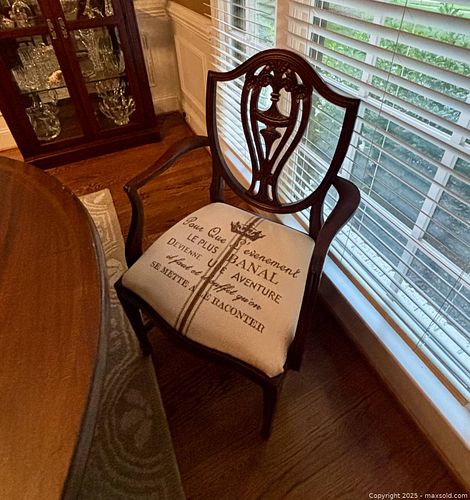 Pour Que l'evenement
LE PLUS BANAL
DEVIENNE UNE AVENTURE
il faut et il suffit qu'on
SE METTE A LE RACONTER
Copyright 2025 - maxsold.com